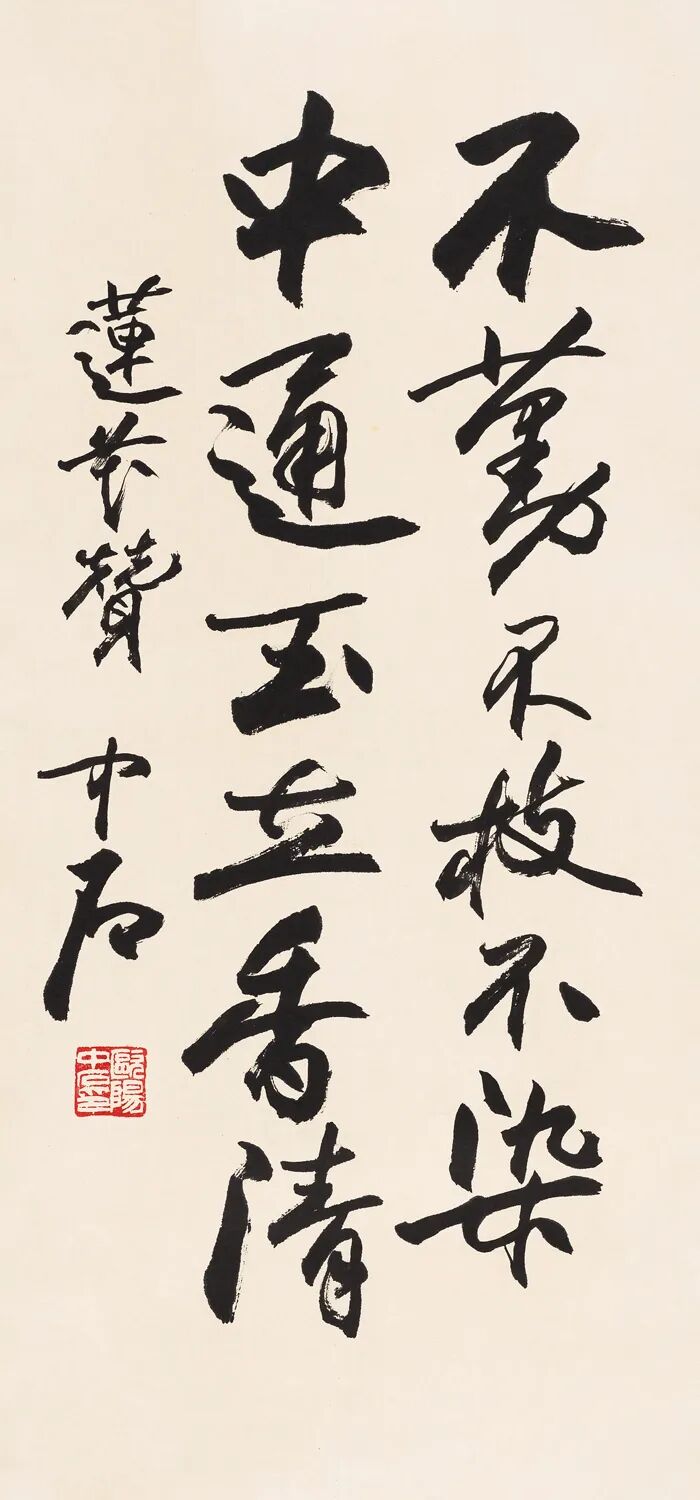 不蔓不枝不染
中通玉立香清
蓮花贊 中石
歐陽中石